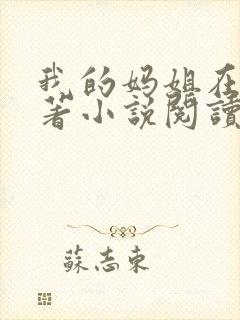 我的妈姐在
著小说閱讀
蘇志東